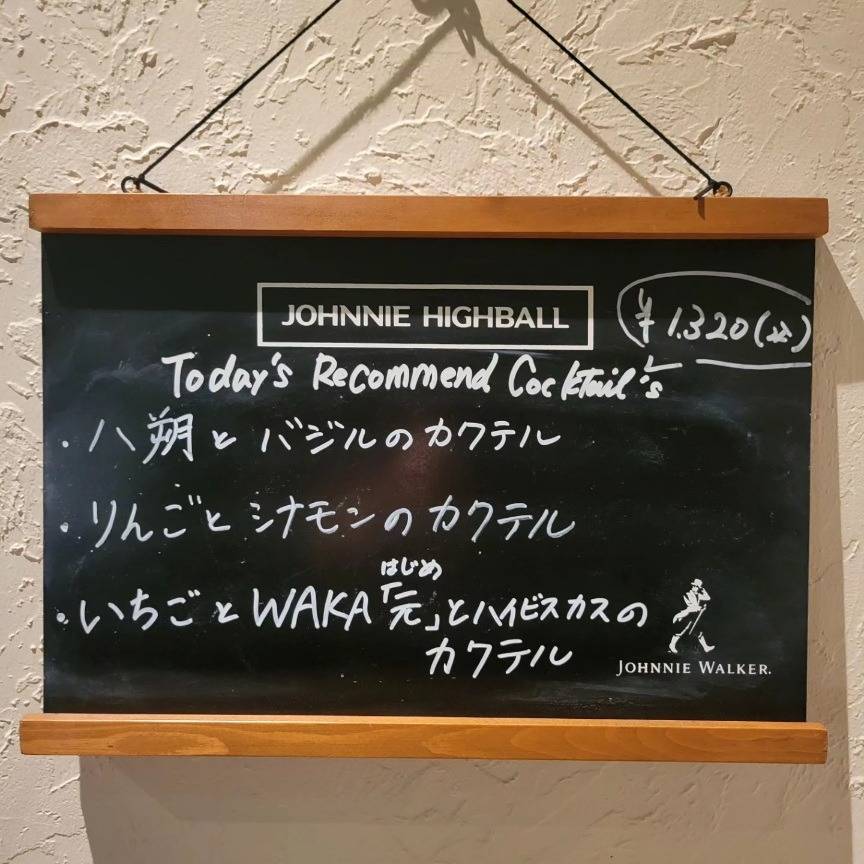 JOHNNIE HIGHBALL
¥1.320(込)
Today's Recommend Cocktail's
・八朔とバジルのカクテル
・りんごとシナモンのカクテル
はじめ
・いちごとWAKA「元」とハイビスカスの
カクテル
JOHNNIE WALKER.